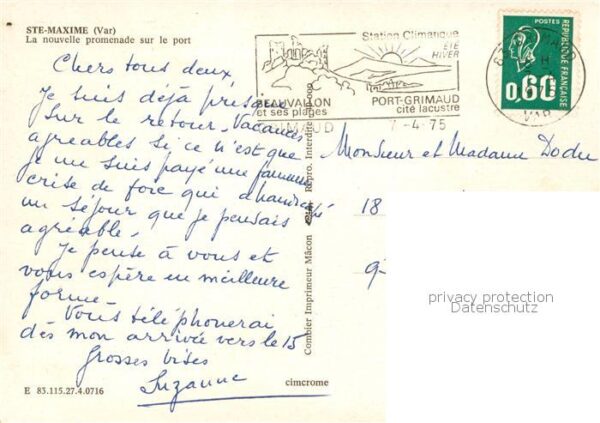 STE-MAXIME (Var)
La nouvelle promenade sur le port
Chers tous deux
Je suis déjà
sur le retour. Vacances
agréables si ce n'est que
je me suis payé une fameuse
crise de foie qui a
un séjour que je pensais
agréable.
Je pense à vous et
vous espère en meilleure
forme.
Vous téléphonerai
dès mon arrivée vers le 15
Grosses bises
Suzanne
E 83.115.27.4.0716
cimcrome
Combier Imprimeur Mâcon
Repro. Interdite
Station Climatique
ÉTÉ
HIVER
BEAUVALLON
et ses plages
PORT-GRIMAUD
cité lacustre
GRIMAUD
7-4-75
VAR
POSTES
REPUBLIQUE FRANÇAISE
0,60
Monsieur et Madame Dodu
18
9-
privacy protection
Datenschutz